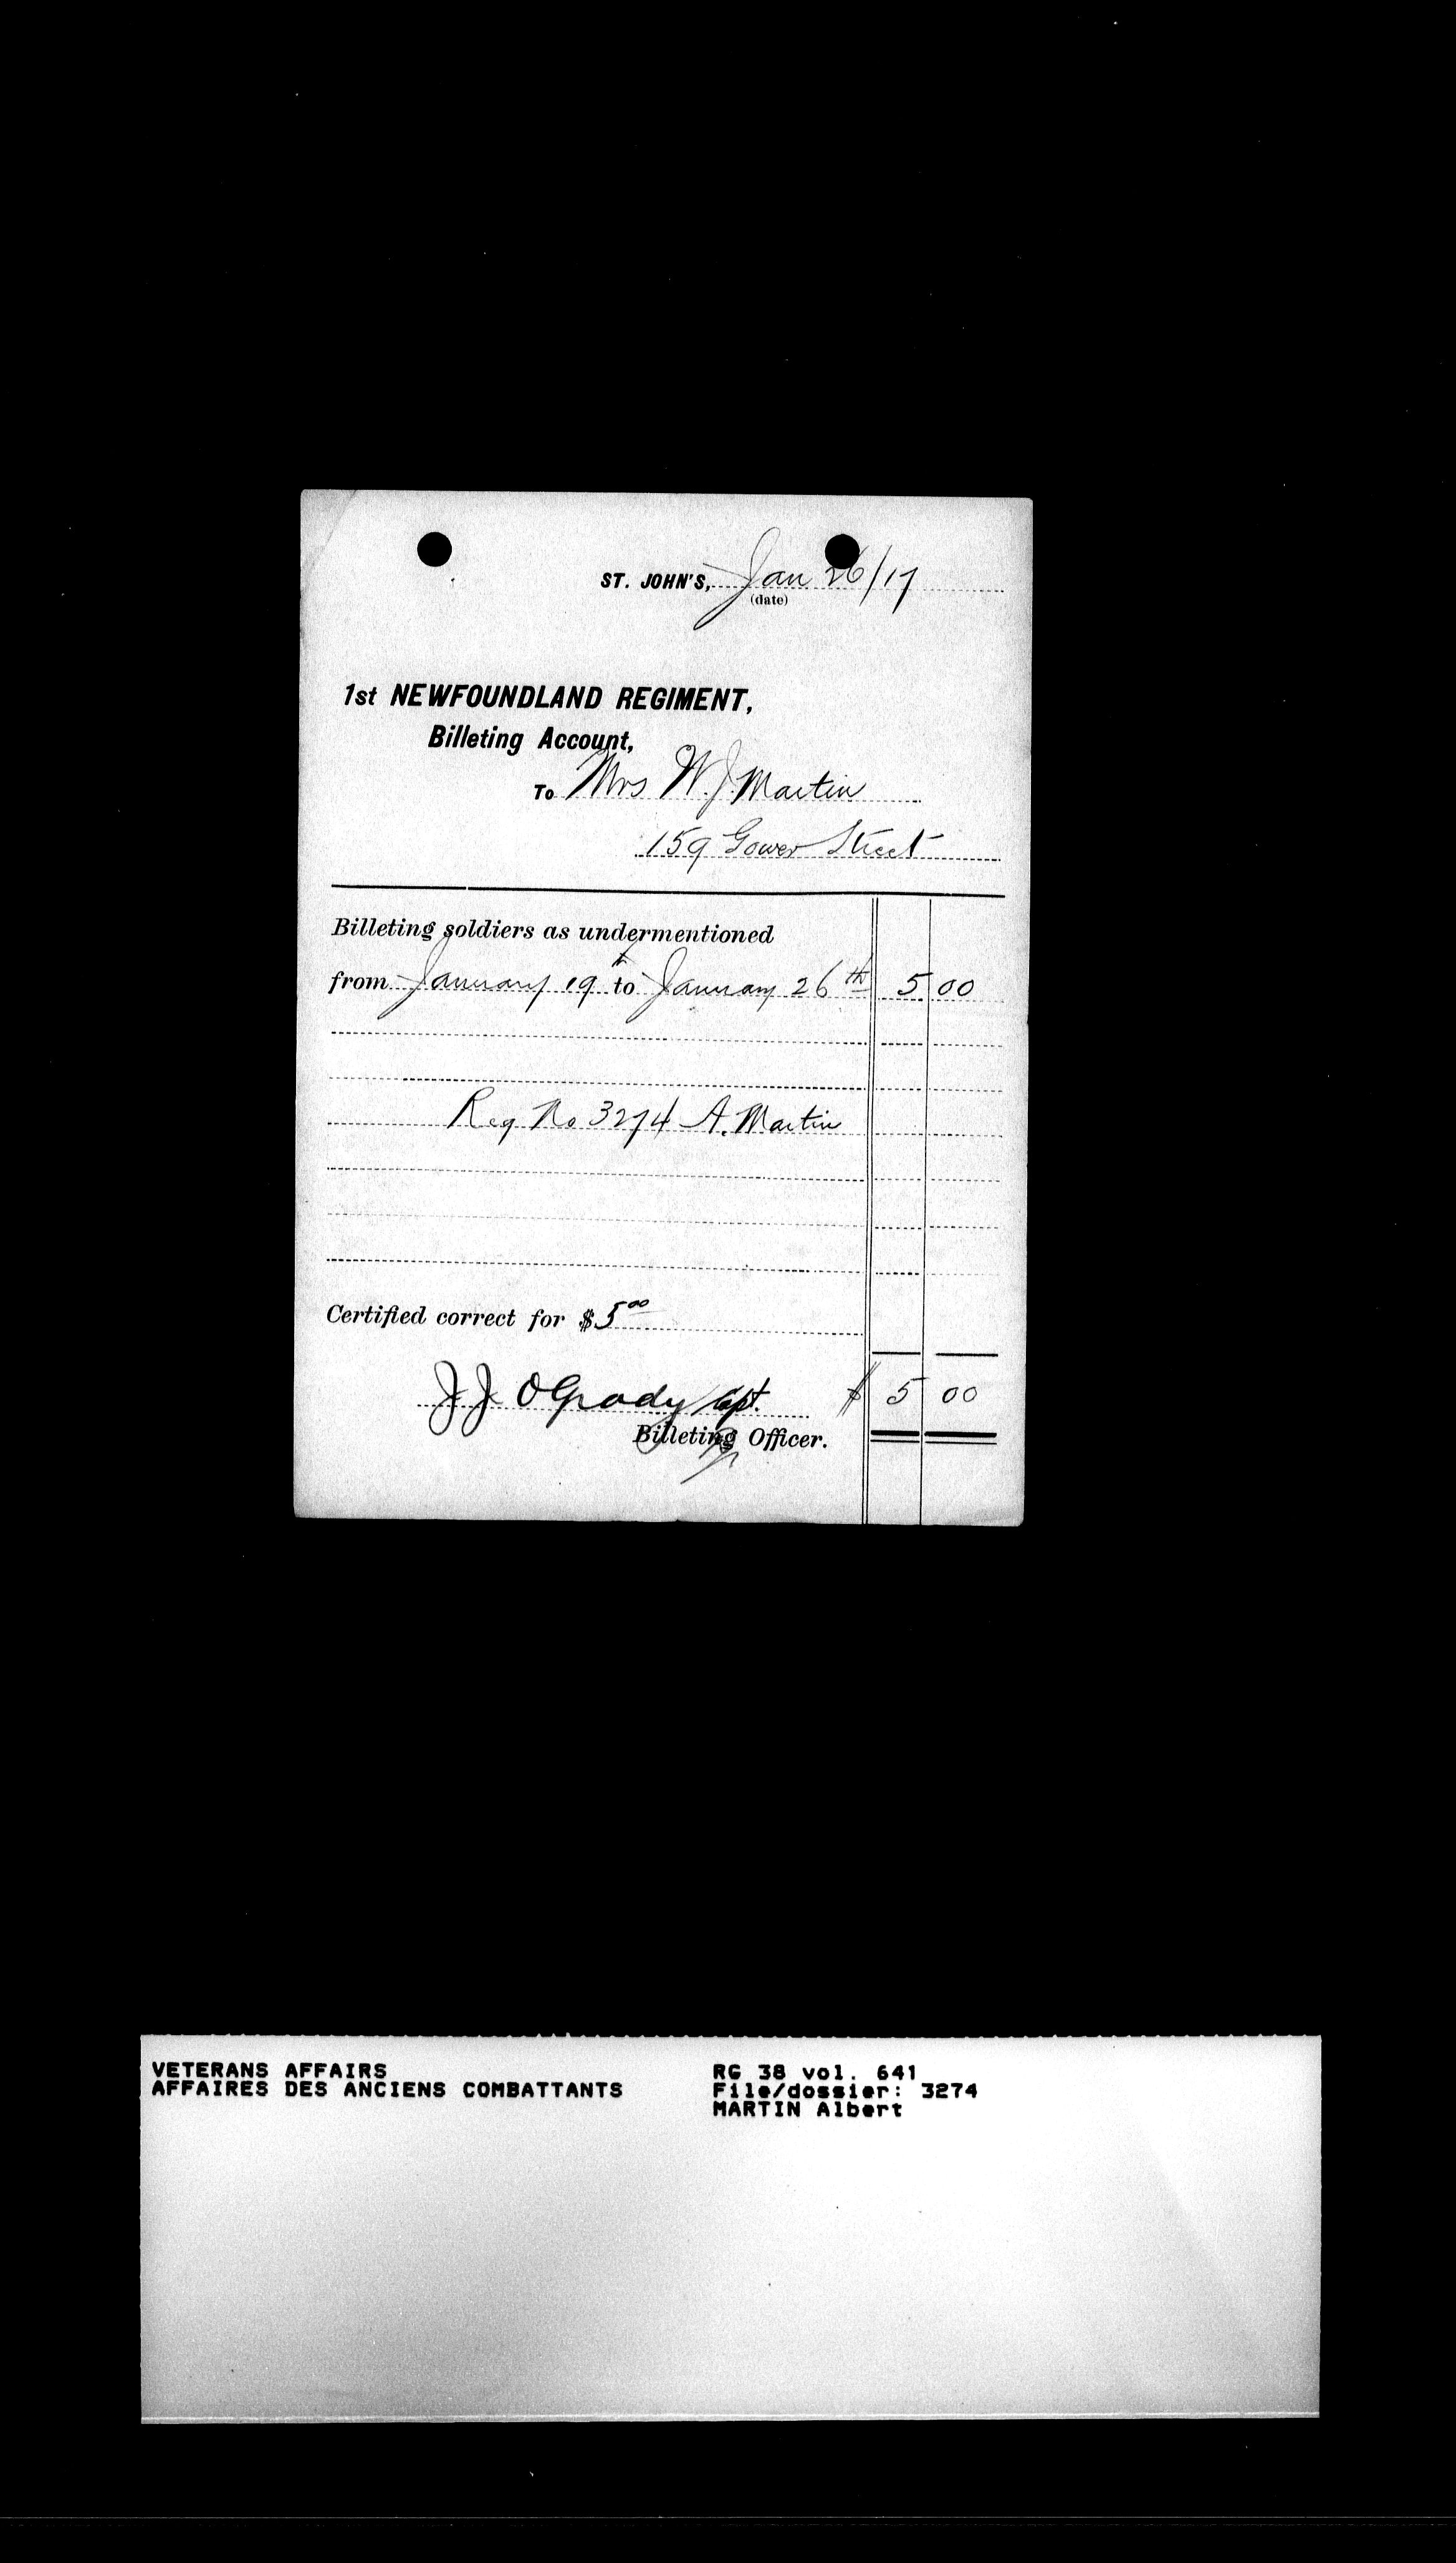 ST. JOHN'S, Jan 26/17
(date)
1st NEWFOUNDLAND REGIMENT,
Billeting Account,
To Mrs W. J. Martin
159 Gower Street
Billeting soldiers as undermentioned
from January 19th to January 26th 5 00
Reg No 3274 A. Martin
Certified correct for $5.00
J J O'Grady Capt. $ 5 00
Billeting Officer.
VETERANS AFFAIRS
AFFAIRES DES ANCIENS COMBATTANTS
RG 38 vol. 641
File/dossier: 3274
MARTIN Albert